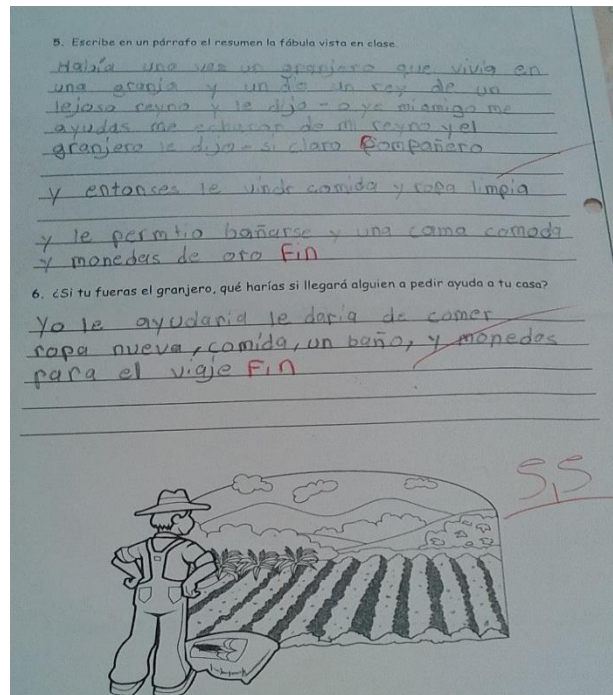 5. Escribe en un párrafo el resumen la fábula vista en clase.
Había una vez un granjero que vivía en
una granja y un día un rey de un
lejoso reyno y le dijo - o ye mi amigo me
ayudas me echaron de mi reyno y el
granjero le dijo - si claro Compañero
y entonses le comida y ropa limpia
y le permtio bañarse y una cama comoda
y monedas de oro Fin
6. ¿Si tu fueras el granjero, qué harías si llegará alguien a pedir ayuda a tu casa?
Yo le ayudaria le daria de comer
ropa nueva, comida, un baño, y monedas
para el viaje Fin
5,5